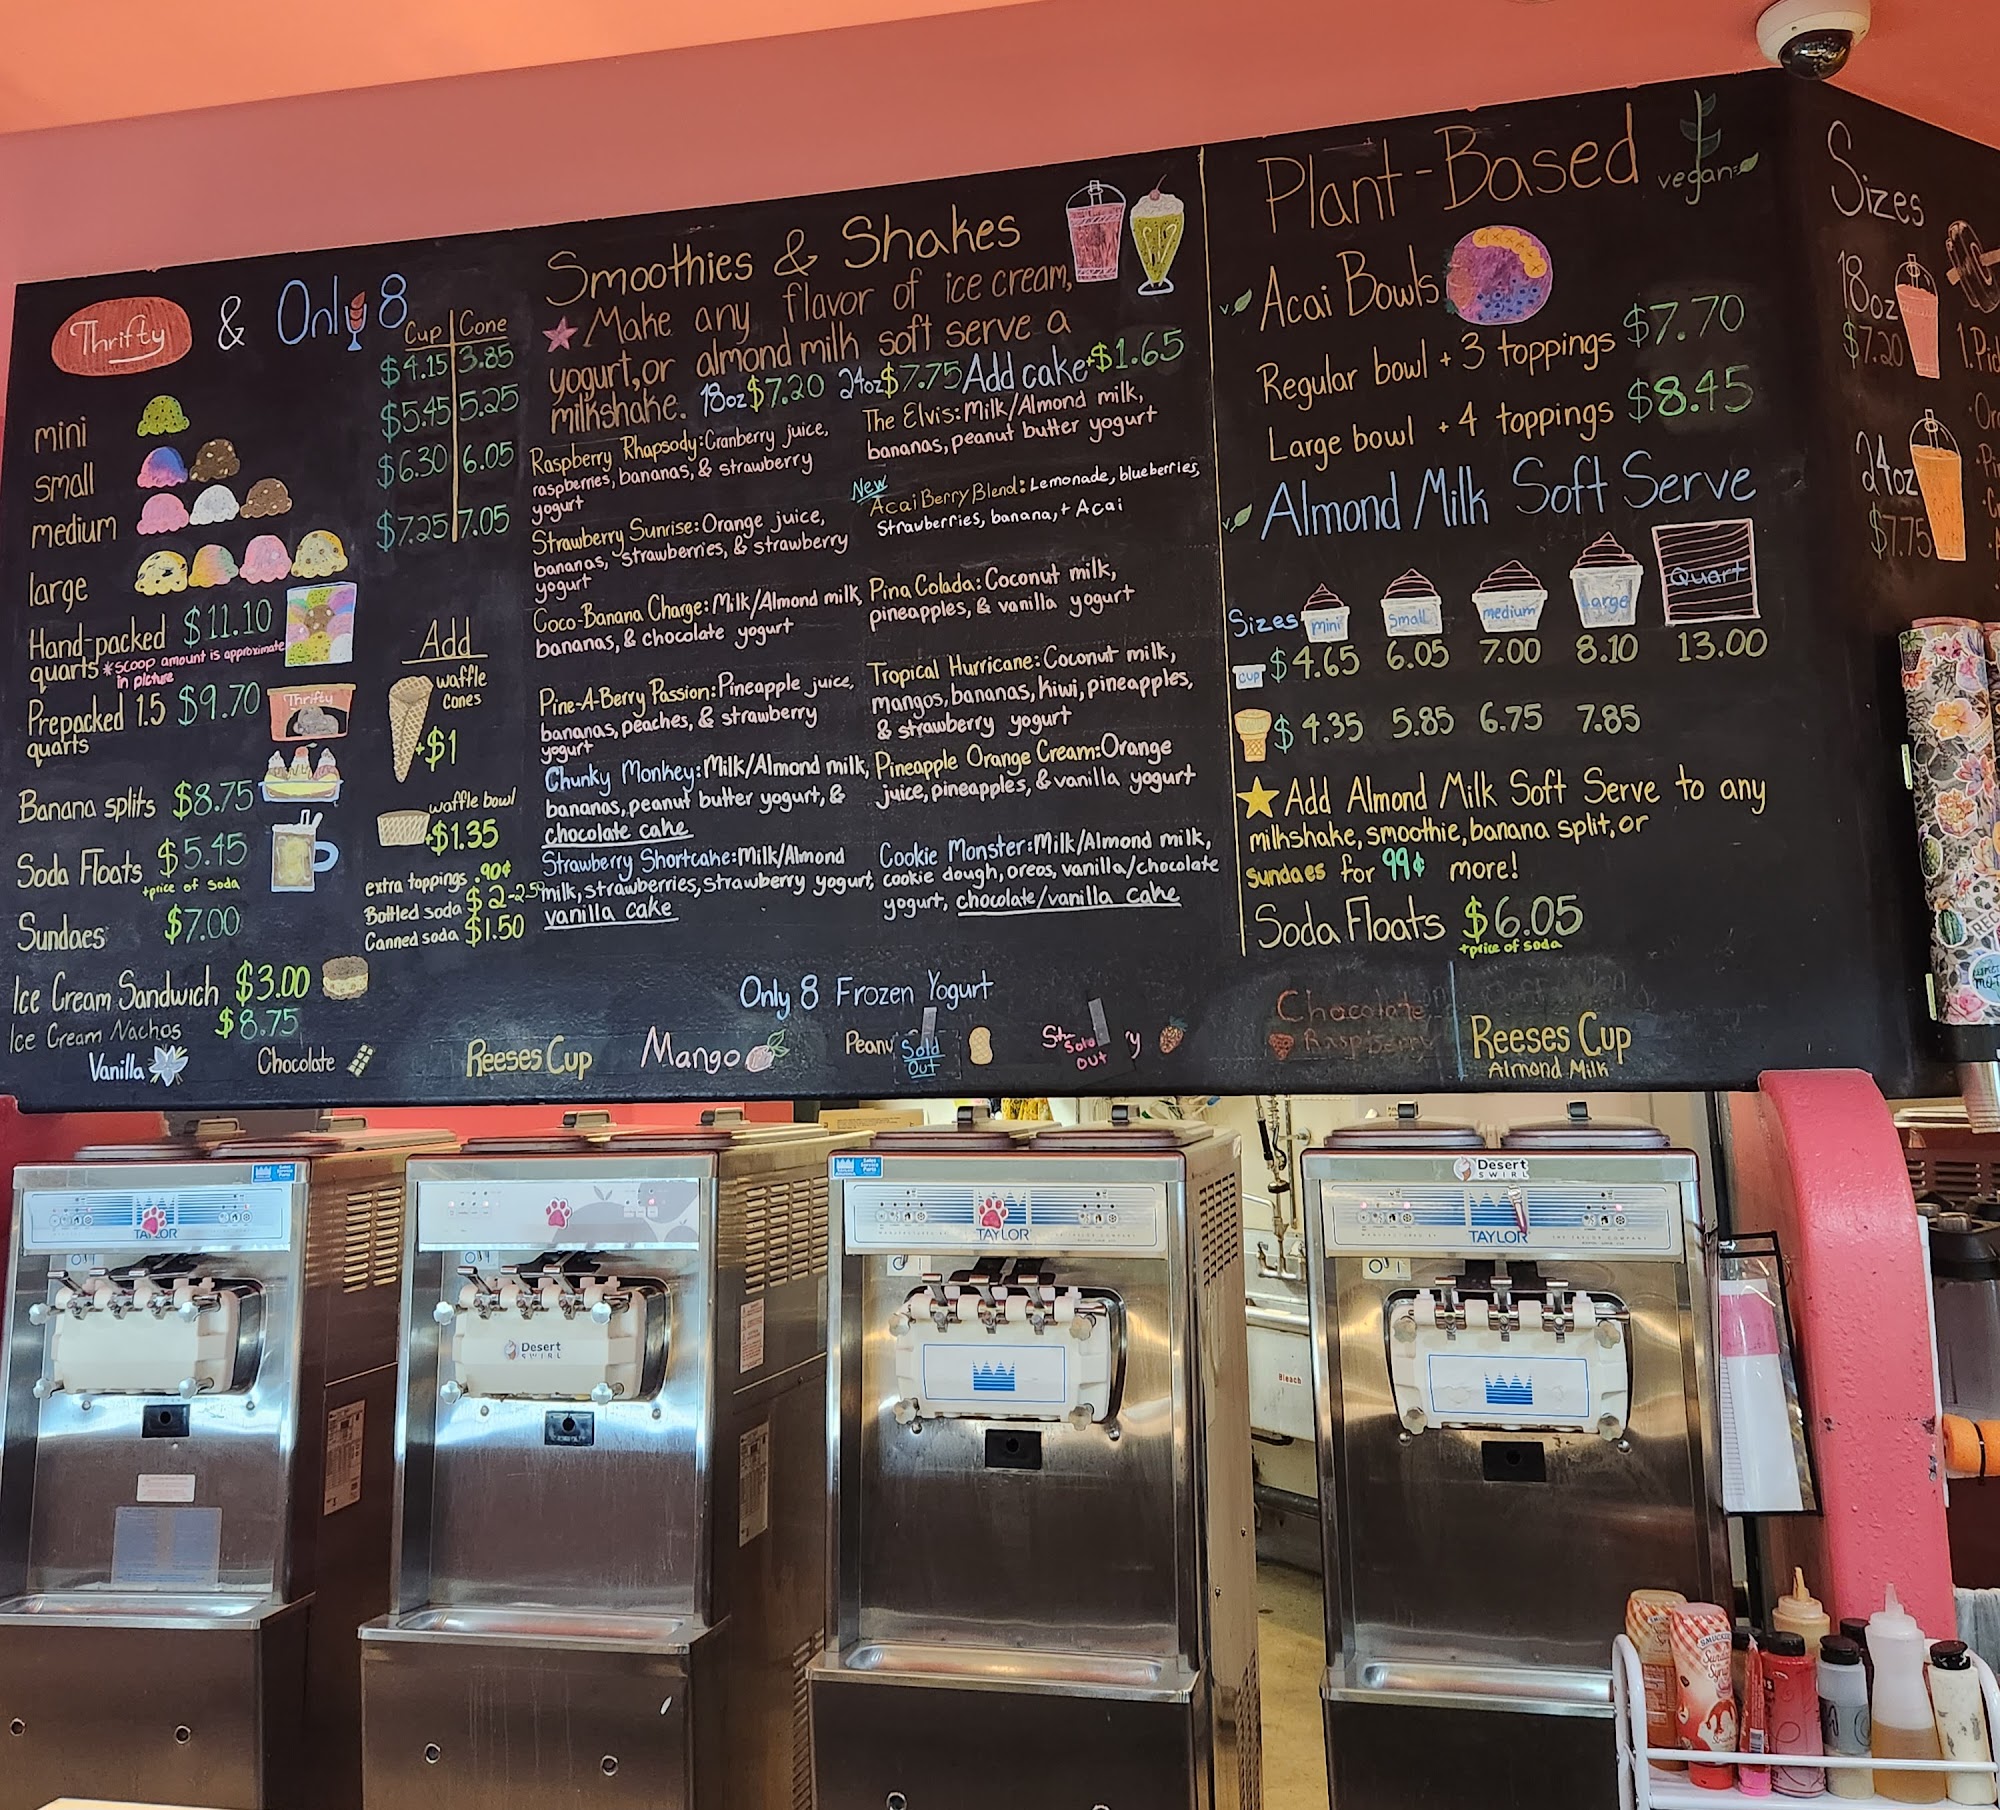 Thrifty & Only 8
Cup Cone
$4.15 3.85
$5.45 5.25
$6.30 6.05
$7.25 7.05
mini
small
medium
large
Hand-packed $11.10
quarts *scoop amount is approximate
in picture
Prepacked 1.5 $9.70
quarts
Thrifty
Banana splits $8.75
Soda Floats $5.45
+price of soda
Sundaes $7.00
Ice Cream Sandwich $3.00
Ice Cream Nachos $8.75
Add
waffle
cones
+$1
waffle bowl
+$1.35
extra toppings .90¢
Bottled soda $2-2.50
Canned soda $1.50
Smoothies & Shakes
Make any flavor of ice cream,
yogurt, or almond milk soft serve a
milkshake. 18oz $7.20 24oz $7.75 Add cake +$1.65
Raspberry Rhapsody: Cranberry juice,
raspberries, bananas, & strawberry
yogurt
Strawberry Sunrise: Orange juice,
bananas, strawberries, & strawberry
yogurt
Coco-Banana Charge: Milk/Almond milk,
bananas, & chocolate yogurt
Pine-A-Berry Passion: Pineapple juice,
bananas, peaches, & strawberry
yogurt
Chunky Monkey: Milk/Almond milk,
bananas, peanut butter yogurt, &
chocolate cake
Strawberry Shortcake: Milk/Almond
milk, strawberries, strawberry yogurt,
vanilla cake
The Elvis: Milk/Almond milk,
bananas, peanut butter yogurt
New
Acai Berry Blend: Lemonade, blueberries,
Strawberries, banana, + Acai
Pina Colada: Coconut milk,
pineapples, & vanilla yogurt
Tropical Hurricane: Coconut milk,
mangos, bananas, kiwi, pineapples,
& strawberry yogurt
Pineapple Orange Cream: Orange
juice, pineapples, & vanilla yogurt
Cookie Monster: Milk/Almond milk,
cookie dough, oreos, vanilla/chocolate
yogurt, chocolate/vanilla cake
Plant-Based vegan
v Acai Bowls
Regular bowl + 3 toppings $7.70
Large bowl + 4 toppings $8.45
v Almond Milk Soft Serve
Sizes mini Small medium Large Quart
cup $4.65 6.05 7.00 8.10 13.00
$4.35 5.85 6.75 7.85
Add Almond Milk Soft Serve to any
milkshake, smoothie, banana split, or
sundaes for 99¢ more!
Soda Floats $6.05
+price of soda
Sizes
18oz
$7.20
24oz
$7.75
1. Pic
Only 8 Frozen Yogurt
Vanilla
Chocolate
Reeses Cup
Mango
Peanu
Sold
Out
St y
Sold
OUT
Chocolate
Raspberry
Reeses Cup
Almond Milk
TAYLOR
Desert
SWIRL
TAYLOR
Desert
SWIRL
TAYLOR
Bleach
SMUCKER'S
Sundae
Syrup